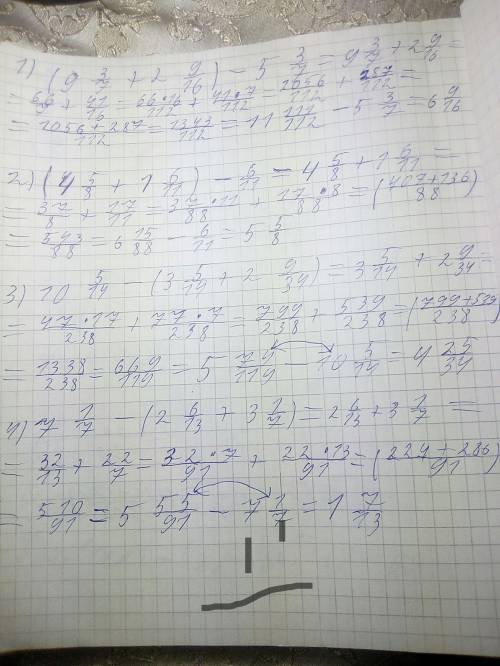 1) (9 3/7 + 2 9/16) - 5 3/7 = 9 3/7 + 2 9/16 =
= 66/7 + 41/16 = 66·16/112 + 41·7/112 = 1056/112 + 287/112 =
= 1056+287/112 = 1343/112 = 11 111/112 - 5 3/7 = 6 9/16
2) (4 5/8 + 1 6/11) - 6/11 = 4 5/8 + 1 6/11 =
= 37/8 + 17/11 = 37·11/88 + 17·8/88 = (407+136/88)
= 543/88 = 6 15/88 - 6/11 = 5 5/8
3) 10 5/14 - (3 5/14 + 2 9/34) = 3 5/14 + 2 9/34 =
= 47·17/238 + 77·7/238 = 799/238 + 539/238 = (799+539/238)
= 1338/238 = 669/119 = 5 74/119 - 10 5/14 = 4 25/34
4) 7 1/7 - (2 6/13 + 3 1/7) = 2 6/13 + 3 1/7 =
= 32/13 + 22/7 = 32·7/91 + 22·13/91 = (224+286/91)
= 510/91 = 5 55/91 - 7 1/7 = 1 7/13